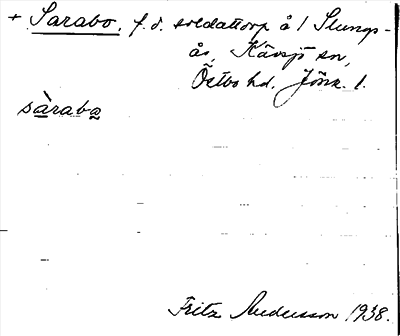 + Sarabo, f. d. soldattorp å 1 Slungs-
ås, Kävsjö sn,
Östbo hd. Jönk. l.
sàraba
Fritz Andersson 1938.